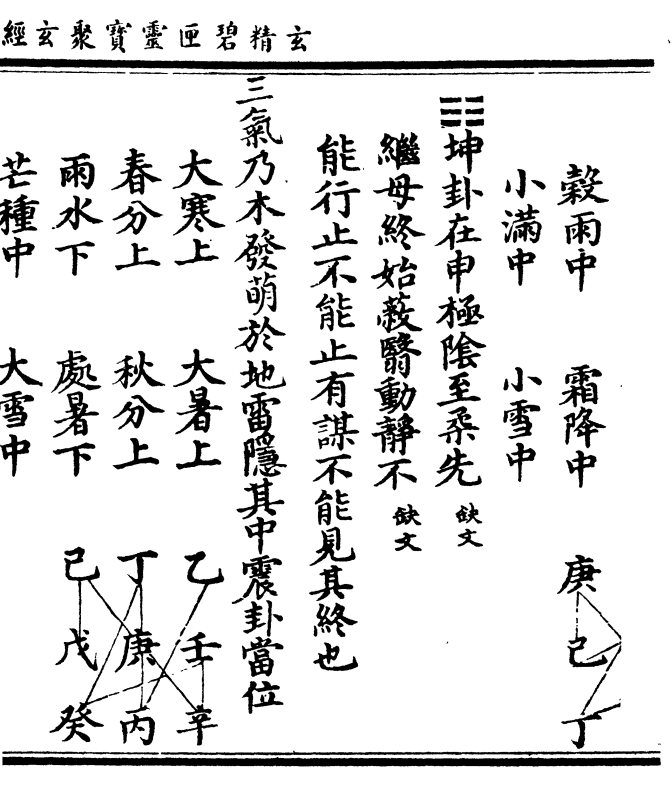 玄精碧匣靈寶聚玄經
穀雨中 霜降中 庚己丁
小滿中 小雪中
䷁坤卦在申極陰至柔先缺文
繼母終始蔽翳動靜不缺文
能行止不能止有謀不能見其終也
三氣乃木發萌於地雷隱其中震卦當位
大寒上 大暑上 乙壬辛
春分上 秋分上 丁庚丙
雨水下 處暑下 己戊癸
芒種中 大雪中